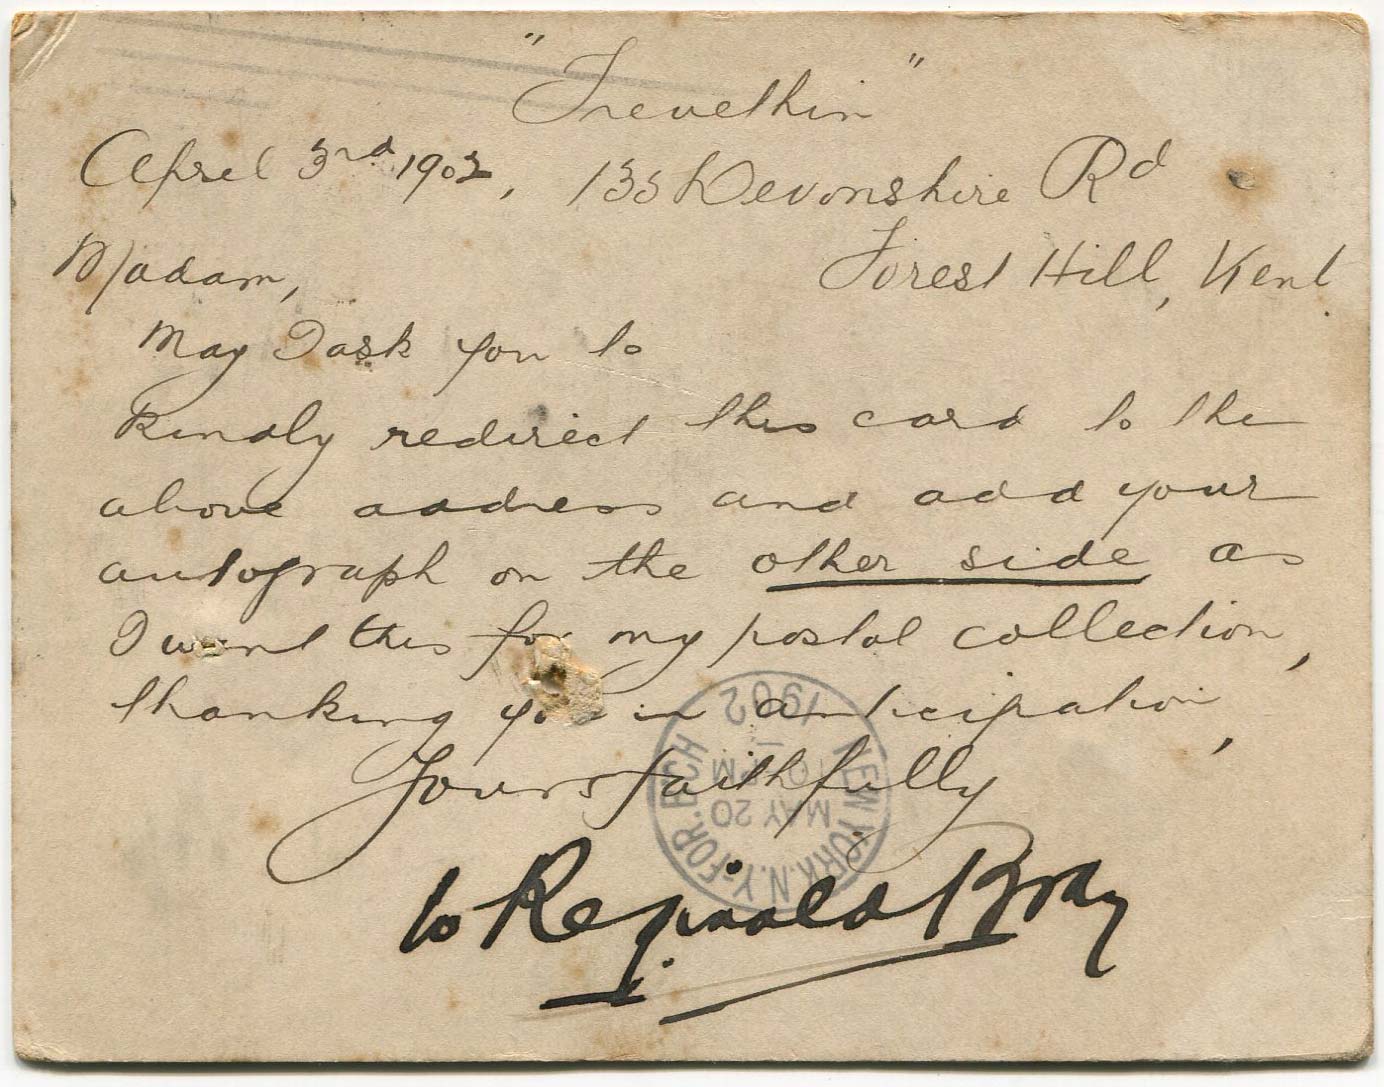 "Trevethin"
April 3rd 1902, 135 Devonshire Rd
Madam, Forest Hill, Kent.
May I ask you to
kindly redirect this card to the
above address and add your
autograph on the other side as
I want this for my postal collection,
thanking you in anticipation,
Yours faithfully
W Reginald Bray
NEW YORK, N.Y.-FOR. BCH
MAY 20
10 PM
1902